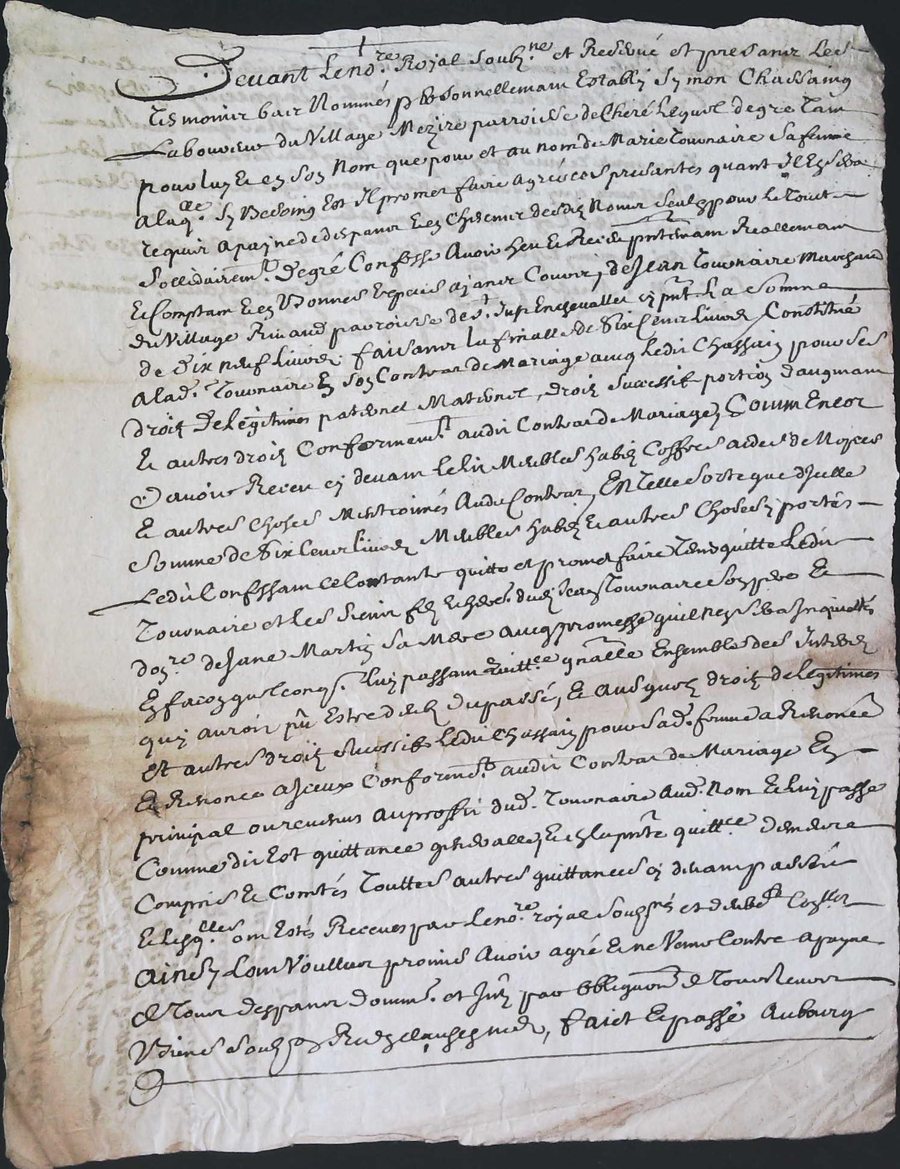 Devant le no.re Royal soub.ne et Reservé et presantz Les
tesmoins bas Nommés personnellemant Estably Symon Chassaing
Laboureur du Village Mezire parroisse de Cheré Lequel de gre tam
pour luy E en son Nom que pour et au nom de Marie Tournaire sa femme
A laq.lle sy Besoing Est Il promet faire Agréer ces presantes quant Il En sera
requis a payne de despans E en Chacun desdis Noms seulz pour le tout
Sollidairem.t De gré Confesse Avoir heu E Receu pntemant Reallemant
E Comptam E en Bonnes Espèces ajant Cours, de Jean Tournaire Marchand
du Village Rivaud parroisse de S.t Just En chevallet cy pnt La somme
de Dix neuf Livres faisant la finalle de Six Cent Livres Constitué
A lad. Tournaire En son Contrat de Mariage avec Ledit Chassain pour ses
droitz de Legitimes paternel Maternel, droitz successif portion d'augmant
E autres droitz Conforment.t audit Contrat de Mariage, Comm Encor
d'avoir Receu cy devant Le lit Meubles habitz Coffres aides de Nopces
E autres Choses Mentionnés Audit Contrat, En Telle sorte que d'Icelle
somme de Six Cent Livres Meubles habitz E autres Choses y portés
Ledit Confessant Ce Contante quitte et promet faire Tenir quitte Ledit
Tournaire et Les siens fils E heré. du dit Jean Tournaire son pere E
do.re de Jane Martin sa Mere avecq promesse quil n'en sera Inquietté
En facon quelconq. Luy passant quitt.ce gnalle Ensemble des Interetz
quy auroit pû Estre deub du passé, E Ausquelz droitz de Legitimes
Et autres droitz successifs Ledit Chassain pour sad. femme a Renoncé
E Renonce a Iceux Conform.t audit Contrat de Mariage En
principal ou revenus au proffit dud. Tournaire Aud. Nom E luy passe
Comme dit Est quittance generalle, E en la pnte quitt.ce demeure
Compris E Comtés Touttes autres quittances cy devant passée
E lesq.lles ont Estés Receues par Le no.re royal soub.né
Ainsy L'ont Voullur promis Avoir agré E ne Venir Contre a payne
de Tous despans domm. et Int. par obliguon de Tous Leurs
Biens, faict E passé Au bourg